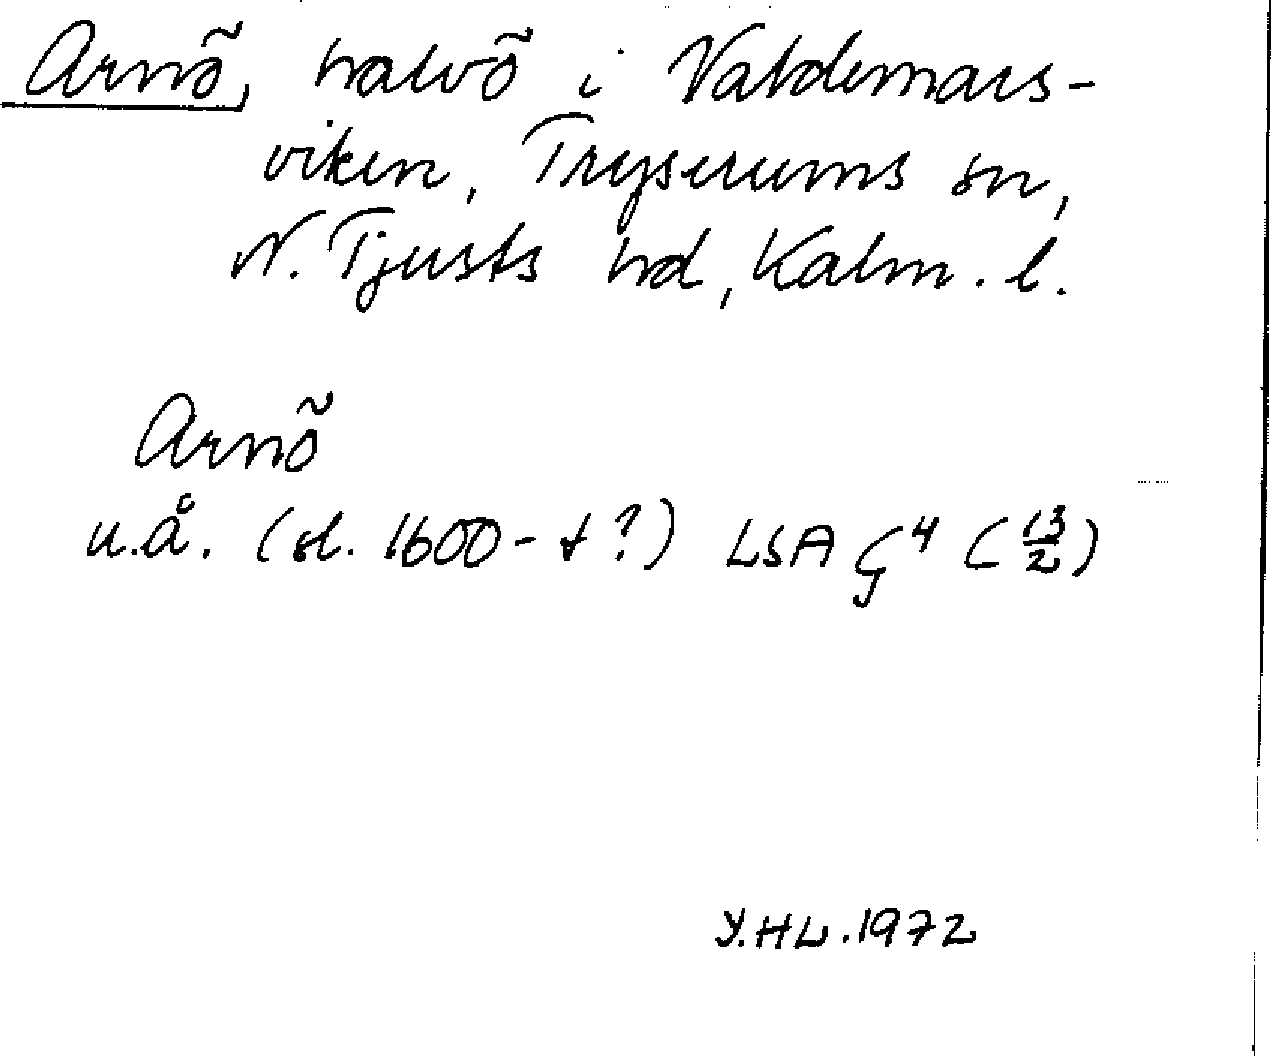 Arnö, halvö i Valdemars-
viken, Tryserums sn,
N. Tjusts hd, Kalm. l.
Arnö
u.å. (sl. 1600-t?) LSA Ç⁴ (13/2)
Y.HL.1972